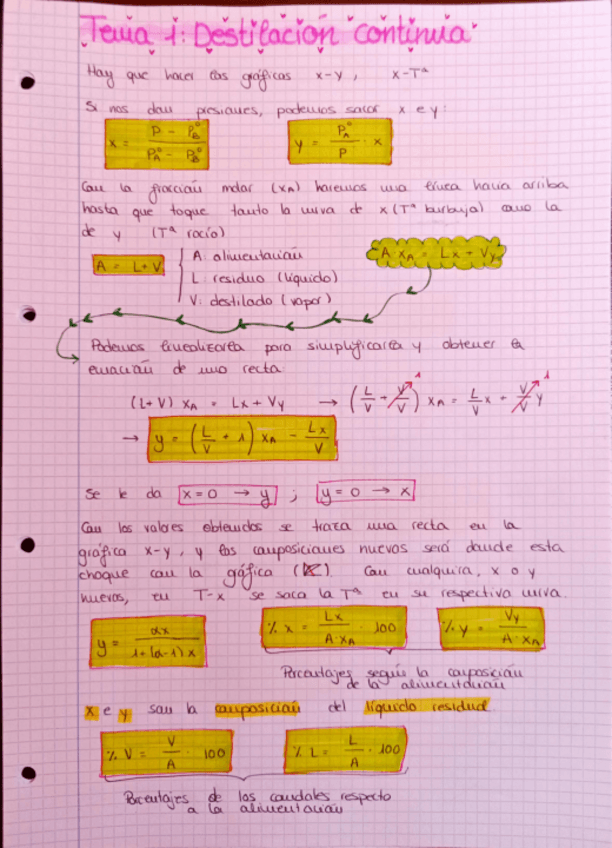 Tema 1: Destilación continua
Hay que hacer las gráficas x-y, x-Tª
Si nos dan presiones, podemos sacar x e y:
x = (P - P_B°) / (P_A° - P_B°)    y = P_A° / P · x
Con la fracción molar (x_A) haremos una línea hacia arriba
hasta que toque tanto la curva de x (Tª burbuja) como la
de y (Tª rocío)
A = L + V    A x_A = Lx + Vy
A: alimentación
L: residuo (líquido)
V: destilado (vapor)
Podemos linealizarla para simplificarla y obtener la
ecuación de una recta:
(L+V) x_A = Lx + Vy → (L/V + V/V) x_A = L/V x + V/V y
1 1
→ y = (L/V + 1) x_A - Lx/V
Se le da x=0 → y ; y=0 → x
Con los valores obtenidos se traza una recta en la
gráfica x-y, y las composiciones nuevas será donde esta
choque con la gáfica. Con cualquira, x o y
nuevos, en T-x se saca la Tª en su respectiva curva.
y = αx / 1+(α-1)x    % x = Lx / A·x_A · 100    % y = Vy / A·x_A
Porcentajes según la composición
de la alimentación
x e y son la composición del líquido residual
% V = V/A · 100    % L = L/A · 100
Porcentajes de los caudales respecto
a la alimentación